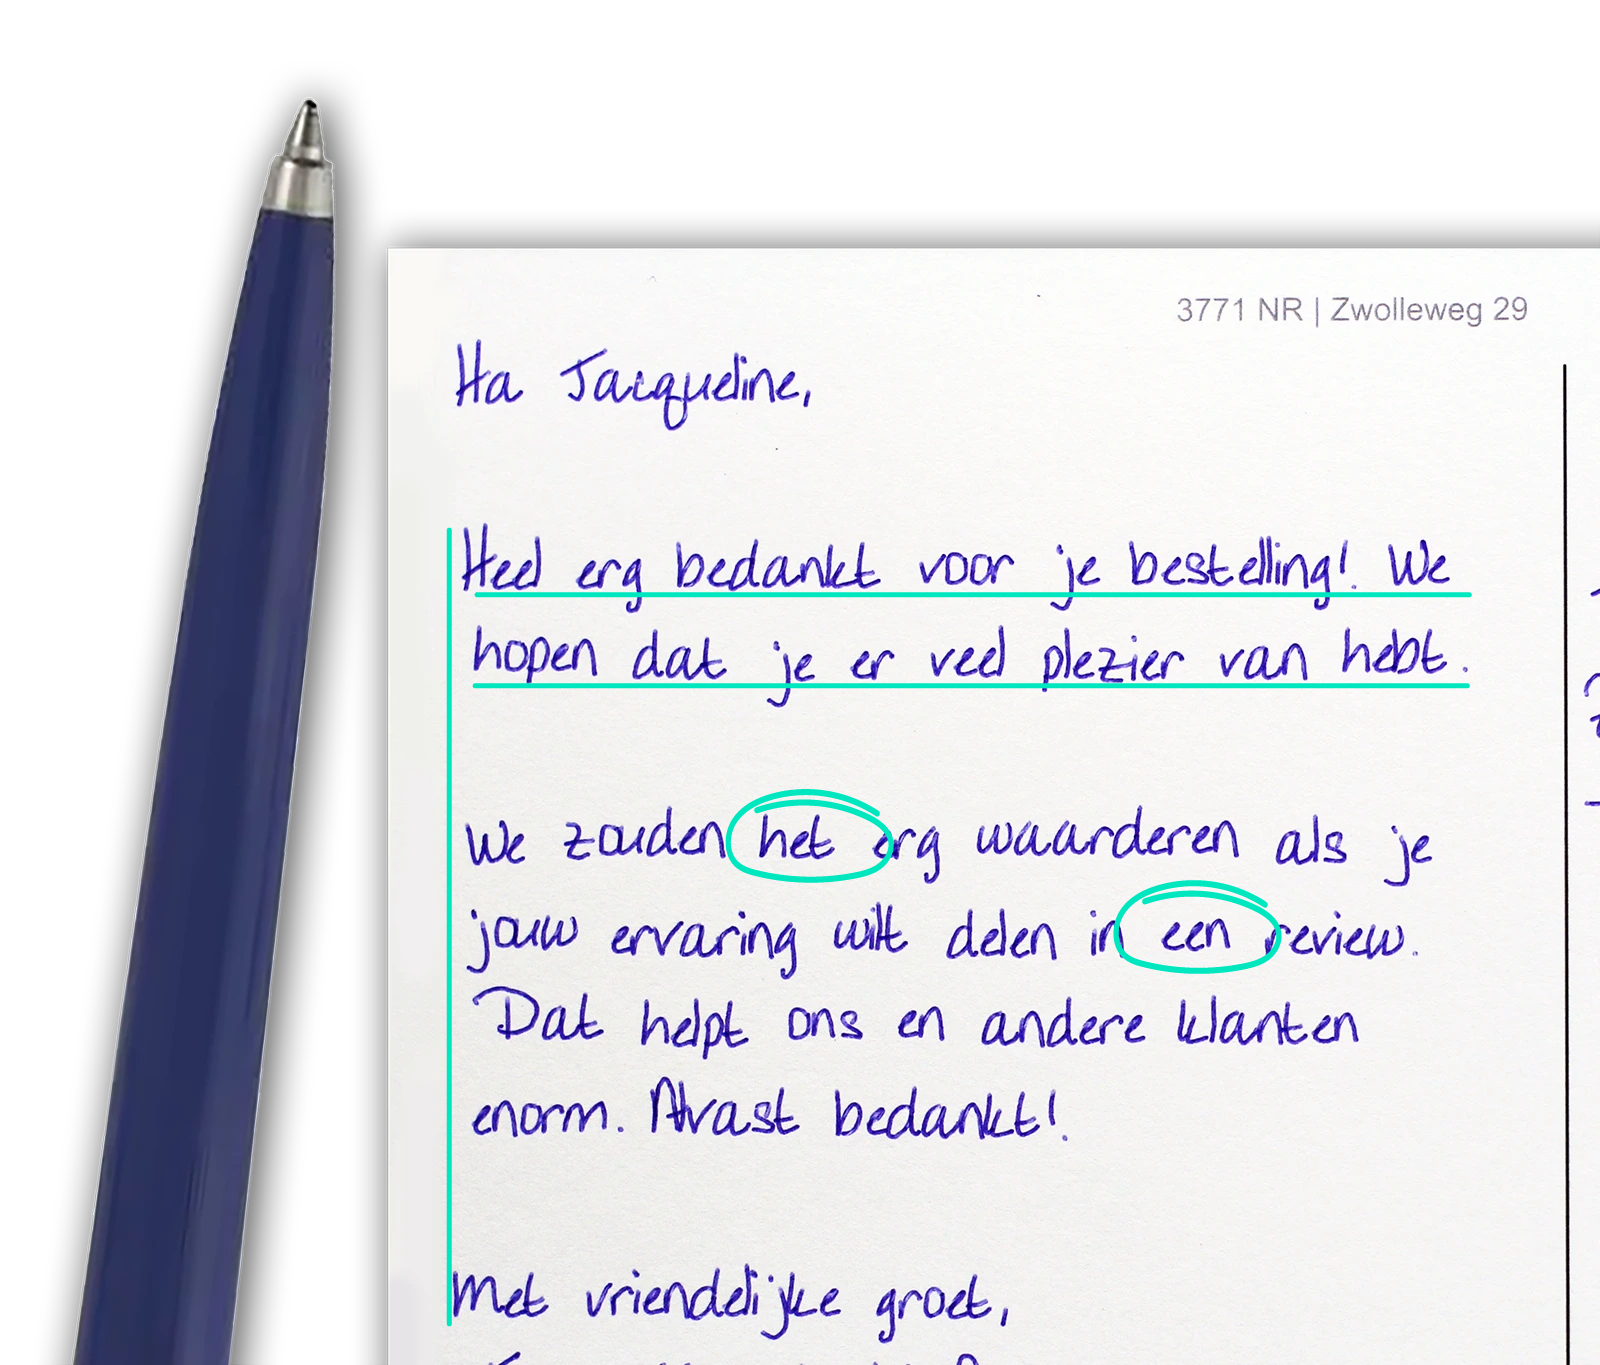 3771 NR | Zwolleweg 29
Ha Jacqueline,
Heel erg bedankt voor je bestelling! We
hopen dat je er veel plezier van hebt.
We zouden het erg waarderen als je
jouw ervaring wilt delen in een review.
Dat helpt ons en andere klanten
enorm. Alvast bedankt!
Met vriendelijke groet,